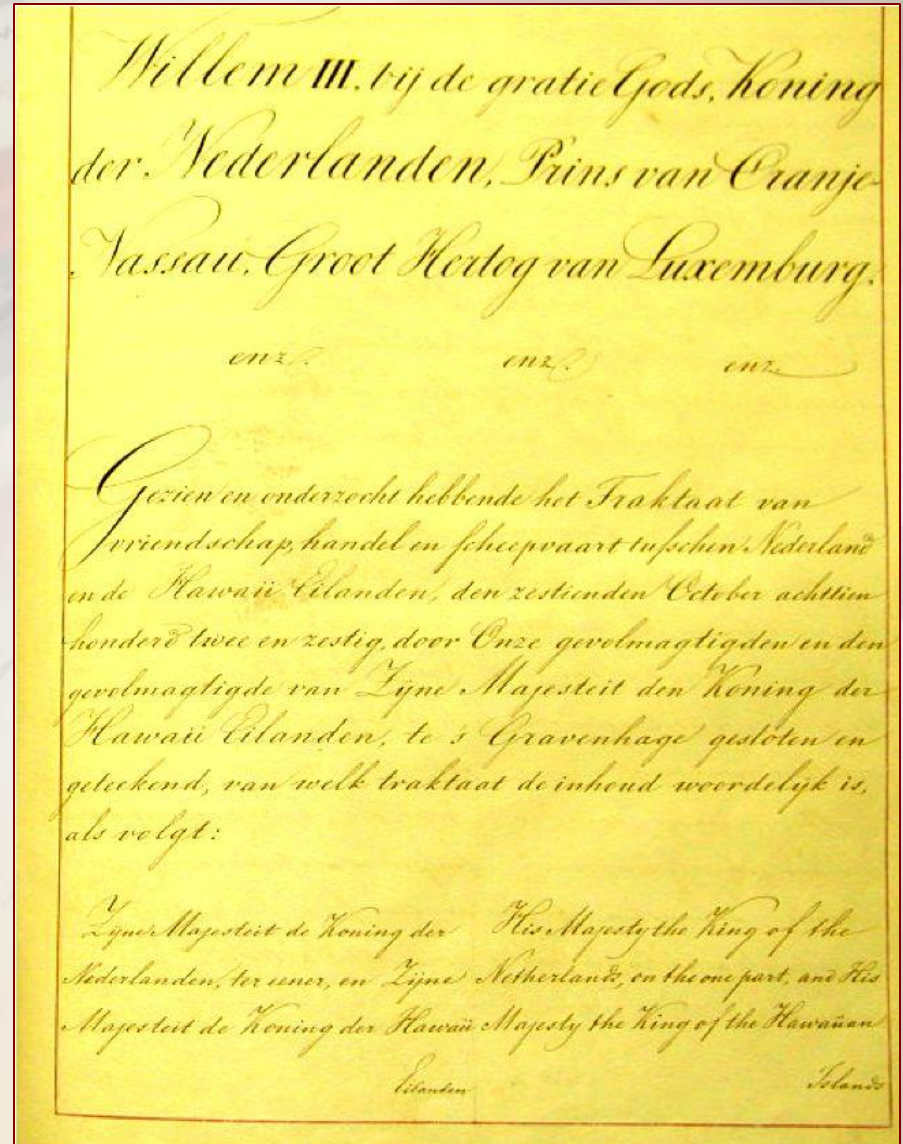 Willem III. bij de gratie Gods, Koning
der Nederlanden, Prins van Oranje-
Nassau, Groot Hertog van Luxemburg.
enz. enz. enz.
Gezien en onderzocht hebbende het Traktaat van
vriendschap, handel en scheepvaart tusschen Nederland
en de Hawaii Eilanden, den zestienden October achttien
honderd twee en zestig, door Onze gevolmagtigden en den
gevolmagtigde van Zijne Majesteit den Koning der
Hawaii Eilanden, te 's Gravenhage gesloten en
geteekend, van welk traktaat de inhoud woordelijk is,
als volgt:
Zijne Majesteit de Koning der
Nederlanden, ter eener, en Zijne
Majesteit de Koning der Hawaii
Eilanden
His Majesty the King of the
Netherlands, on the one part, and His
Majesty the King of the Hawaiian
Islands